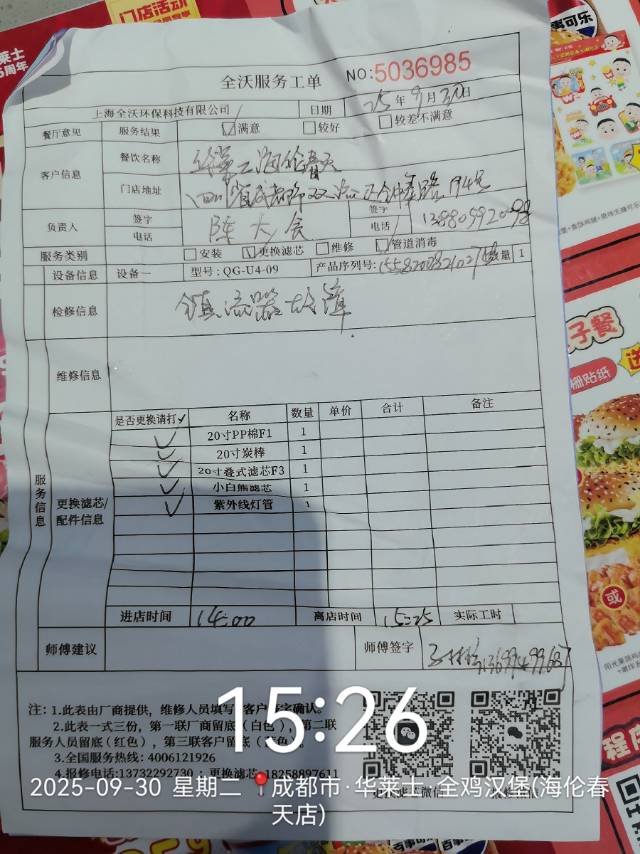 门店活动
全沃服务工单 NO:5036985
上海全沃环保科技有限公司 日期 25年9月30日
餐厅意见 服务结果 ☑满意 □较好 □较差不满意
客户信息 餐饮名称 华莱士海伦春天
门店地址
负责人 签字 陈大会 签字
电话 电话 13880992098
服务类别 □安装 ☑更换滤芯 □维修 ☑管道消毒
设备信息 设备一 型号:QG-U4-09 产品序列号: 数量 1
检修信息 镇流器故障
维修信息
服务信息
更换滤芯/配件信息
是否更换请打✓ 名称 数量 单价 合计 备注
✓ 20寸PP棉F1 1
✓ 20寸炭棒 1
✓ 20寸叠式滤芯F3 1
✓ 小白熊滤芯 1
✓ 紫外线灯管 1
进店时间 14:00 离店时间 15:25 实际工时
师傅建议 师傅签字
注:1.此表由厂商提供,维修人员填写,客户签字确认。
2.此表一式三份,第一联厂商留底(白色),第二联
服务人员留底(红色),第三联客户留底
3.全国服务热线:4006121926
4.报修电话:13732292730 ;更换滤芯:18258897611
15:26
2025-09-30 星期二 成都市·华莱士·全鸡汉堡(海伦春
天店)
子餐
姗贴纸
送
或
程序
百事可乐